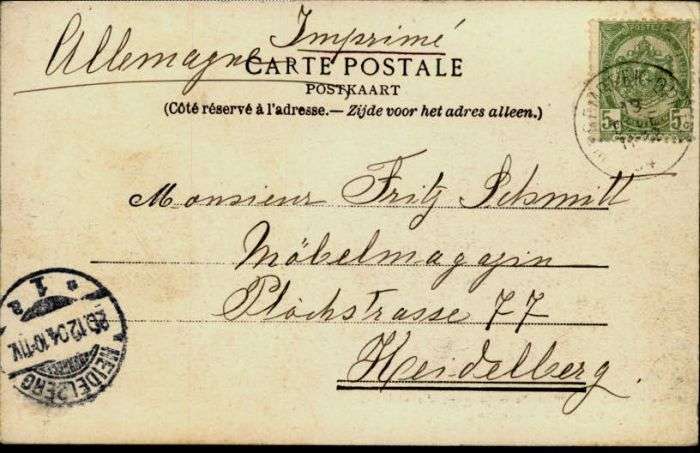 Imprimé
Allemagne
CARTE POSTALE
POSTKAART
(Côté réservé à l'adresse.— Zijde voor het adres alleen.)
5c 5c
Monsieur Fritz Schmitt
Möbelmagazin
Plöckstrasse 77
Heidelberg.
HEIDELBERG
12.04.10-11V.
* 1 a